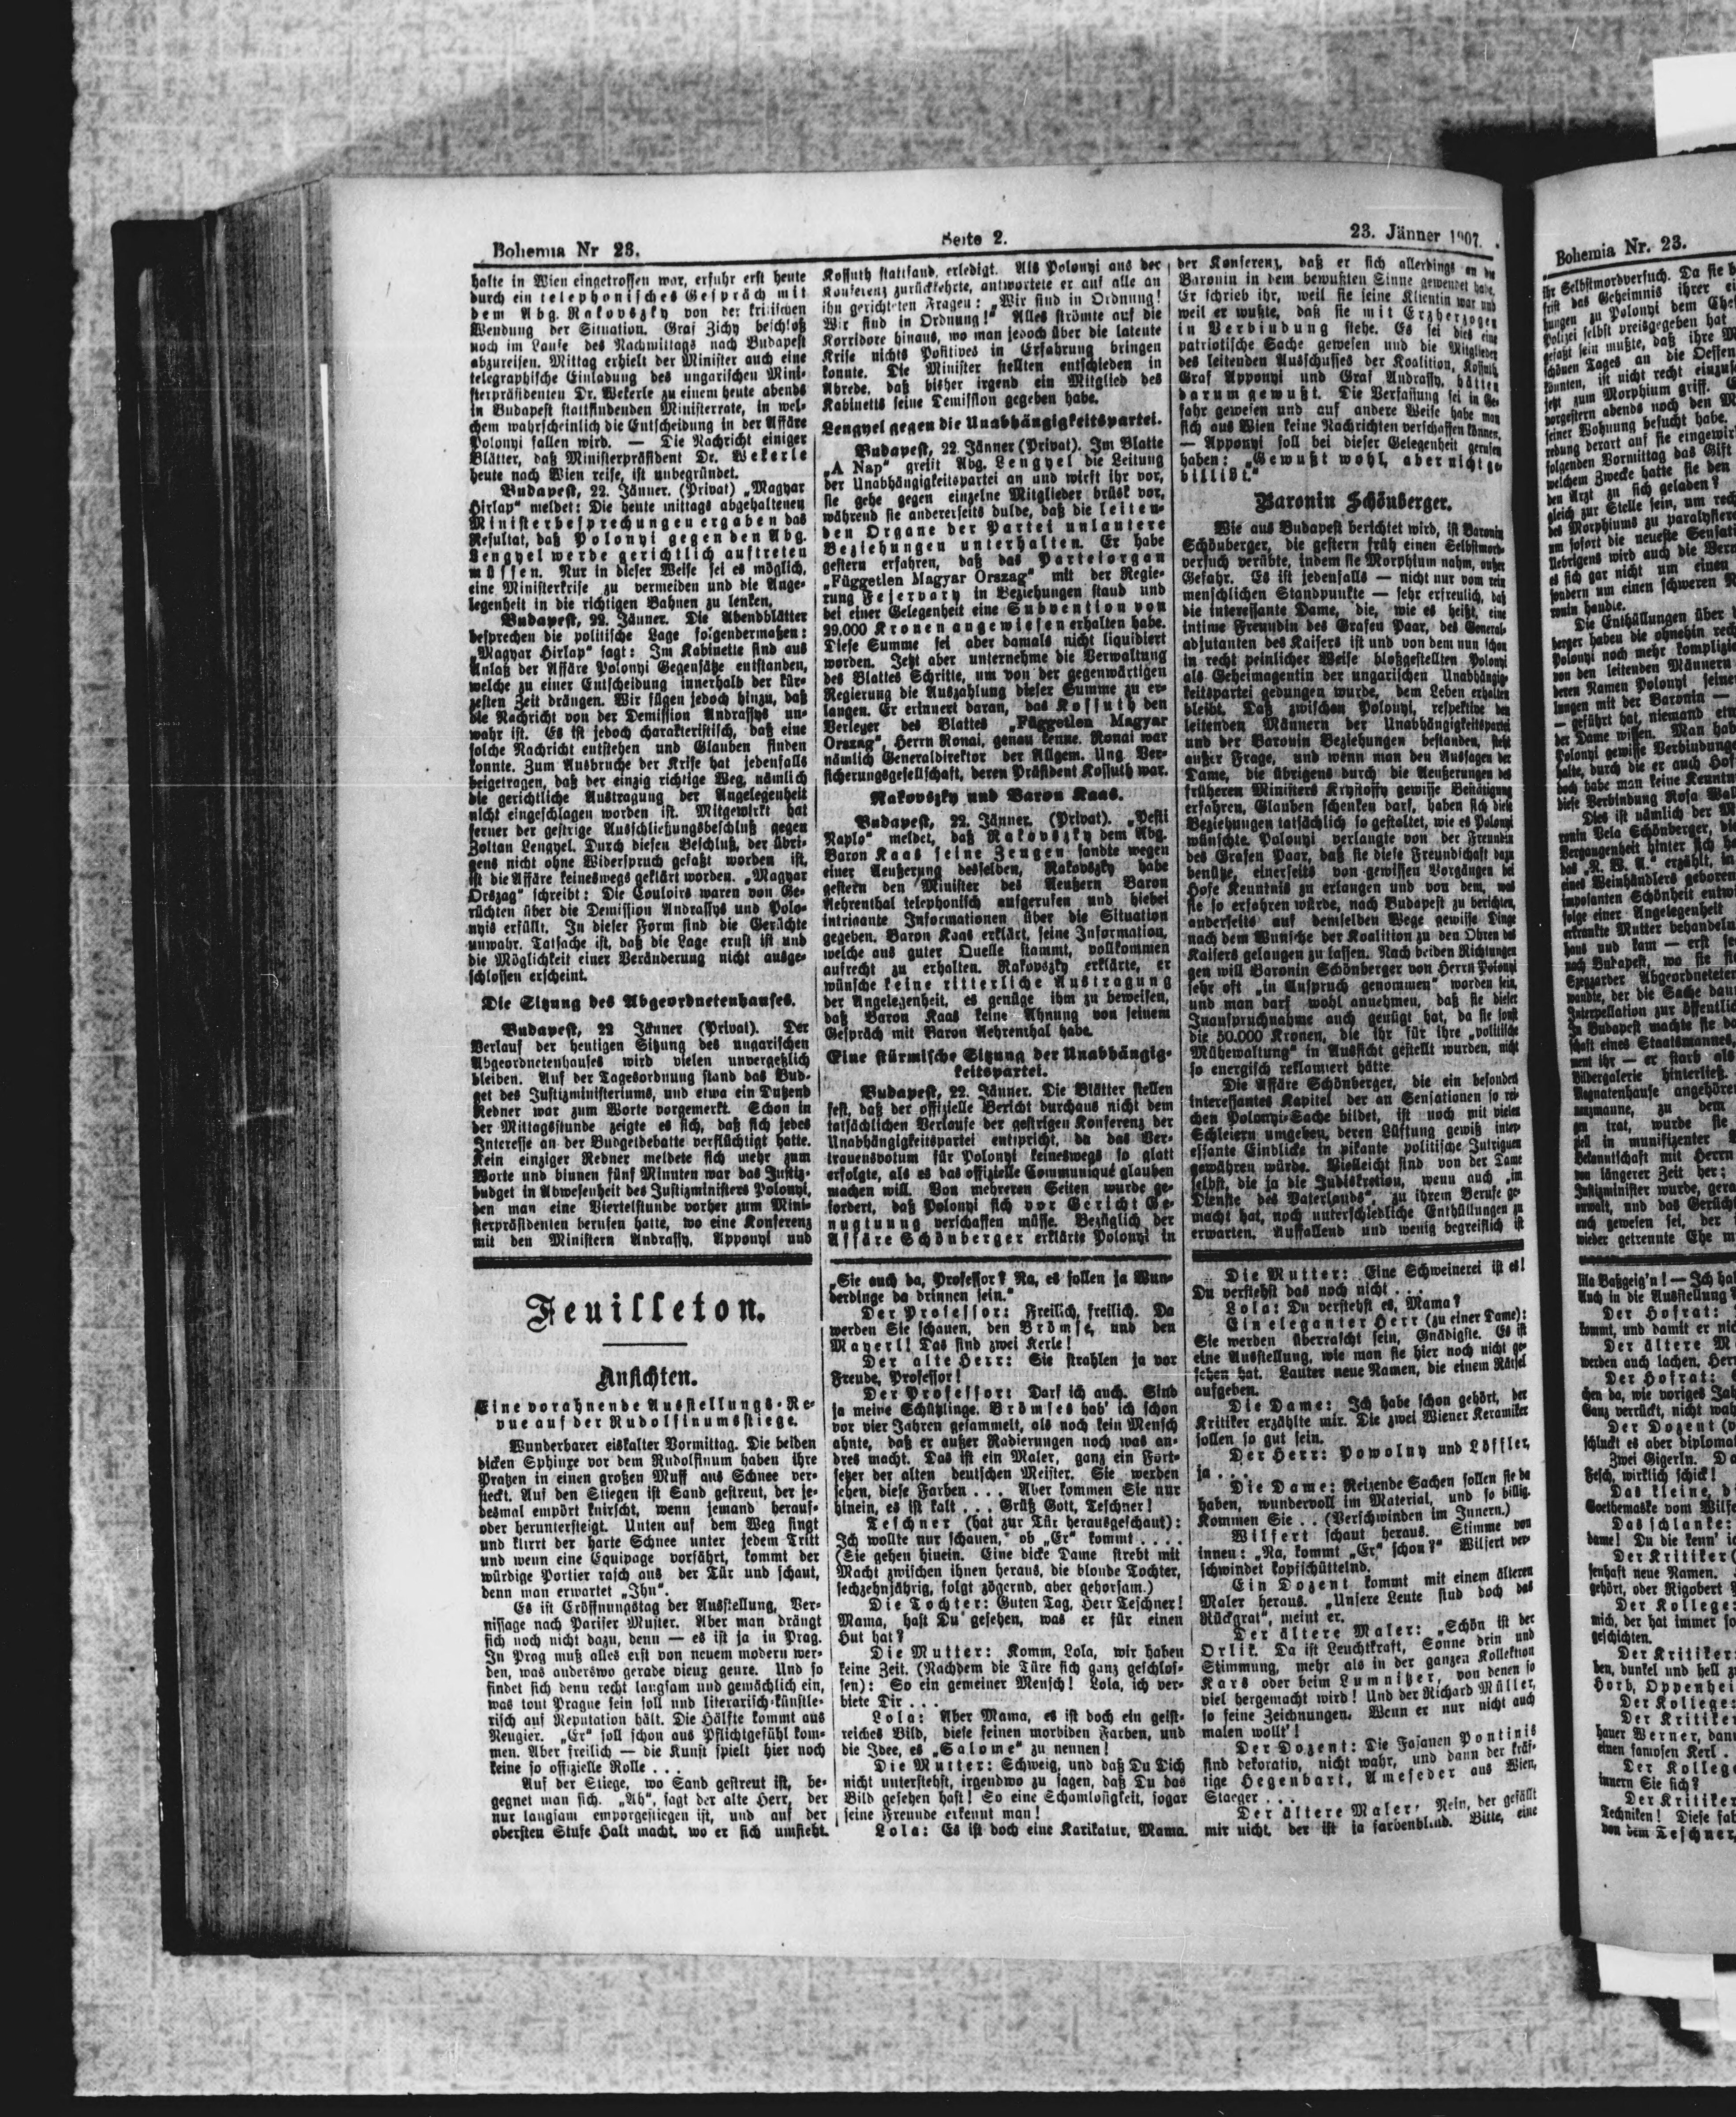 Bohemia Nr 23.
Seite 2.
23. Jänner 1907.
halte in Wien eingetroffen war, erfuhr erst heute
durch ein telephonisches Gespräch mit
dem Abg. Rakovszky von der kritischen
Wendung der Situation. Graf Zichy beschloß
noch im Laufe des Nachmittags nach Budapest
abzureisen. Mittag erhielt der Minister auch eine
telegraphische Einladung des ungarischen Mini-
sterpräsidenten Dr. Wekerle zu einem heute abends
in Budapest stattfindenden Ministerrate, in wel-
chem wahrscheinlich die Entscheidung in der Affäre
Polonyi fallen wird. — Die Nachricht einiger
Blätter, daß Ministerpräsident Dr. Wekerle
heute nach Wien reise, ist unbegründet.
Budapest, 22. Jänner. (Privat) „Magyar
Hirlap" meldet: Die heute mittags abgehaltenen
Ministerbesprechungen ergaben das
Resultat, daß Polonyi gegen den Abg.
Lengyel werde gerichtlich auftreten
müssen. Nur in dieser Weise sei es möglich,
eine Ministerkrise zu vermeiden und die Ange-
legenheit in die richtigen Bahnen zu lenken.
Budapest, 22. Jänner. Die Abendblätter
besprechen die politische Lage folgendermaßen:
„Magyar Hirlap" sagt: Im Kabinette sind aus
Anlaß der Affäre Polonyi Gegensätze entstanden,
welche zu einer Entscheidung innerhalb der kür-
zesten Zeit drängen. Wir fügen jedoch hinzu, daß
die Nachricht von der Demission Andrassys un-
wahr ist. Es ist jedoch charakteristisch, daß eine
solche Nachricht entstehen und Glauben finden
konnte. Zum Ausbruche der Krise hat jedenfalls
beigetragen, daß der einzig richtige Weg, nämlich
die gerichtliche Austragung der Angelegenheit
nicht eingeschlagen worden ist. Mitgewirkt hat
ferner der gestrige Ausschließungsbeschluß gegen
Zoltan Lengyel. Durch diesen Beschluß, der übri-
gens nicht ohne Widerspruch gefaßt worden ist,
ist die Affäre keineswegs geklärt worden. „Magyar
Orszag" schreibt: Die Couloirs waren von Ge-
rüchten über die Demission Andrassys und Polo-
nyis erfüllt. In dieser Form sind die Gerüchte
unwahr. Tatsache ist, daß die Lage ernst ist und
die Möglichkeit einer Veränderung nicht ausge-
schlossen erscheint.
Die Sitzung des Abgeordnetenhauses.
Budapest, 22 Jänner (Privat). Der
Verlauf der heutigen Sitzung des ungarischen
Abgeordnetenhauses wird vielen unvergeßlich
bleiben. Auf der Tagesordnung stand das Bud-
get des Justizministeriums, und etwa ein Dutzend
Redner war zum Worte vorgemerkt. Schon in
der Mittagsstunde zeigte es sich, daß sich jedes
Interesse an der Budgetdebatte verflüchtigt hatte.
Kein einziger Redner meldete sich mehr zum
Worte und binnen fünf Minuten war das Justiz-
budget in Abwesenheit des Justizministers Polonyi,
den man eine Viertelstunde vorher zum Mini-
sterpräsidenten berufen hatte, wo eine Konferenz
mit den Ministern Andrassy, Apponyi und
Kossuth stattfand, erledigt. Als Polonyi aus der
Konferenz zurückkehrte, antwortete er auf alle an
ihn gerichteten Fragen: „Wir sind in Ordnung!
Wir sind in Ordnung!" Alles strömte auf die
Korridore hinaus, wo man jedoch über die latente
Krise nichts Positives in Erfahrung bringen
konnte. Die Minister stellten entschieden in
Abrede, daß bisher irgend ein Mitglied des
Kabinetts seine Demission gegeben habe.
Lengyel gegen die Unabhängigkeitspartei.
Budapest, 22. Jänner (Privat). Im Blatte
„A Nap" greift Abg. Lengyel die Leitung
der Unabhängigkeitspartei an und wirft ihr vor,
sie gehe gegen einzelne Mitglieder brüsk vor,
während sie andererseits dulde, daß die leiten-
den Organe der Partei unlautere
Beziehungen unterhalten. Er habe
gestern erfahren, daß das Parteiorgan
„Független Magyar Orszag" mit der Regie-
rung Fejervary in Beziehungen stand und
bei einer Gelegenheit eine Subvention von
29.000 Kronen angewiesen erhalten habe.
Diese Summe sei aber damals nicht liquidiert
worden. Jetzt aber unternehme die Verwaltung
des Blattes Schritte, um von der gegenwärtigen
Regierung die Auszahlung dieser Summe zu er-
langen. Er erinnert daran, das Kossuth den
Verleger des Blattes „Független Magyar
Orszag", Herrn Ronai, genau kenne. Ronai war
nämlich Generaldirektor der Allgem. Ung. Ver-
sicherungsgesellschaft, deren Präsident Kossuth war.
Rakovszky und Baron Kaas.
Budapest, 22. Jänner. (Privat). „Pesti
Naplo" meldet, daß Rakovszky dem Abg.
Baron Kaas seine Zeugen sandte wegen
einer Aeußerung desselben, Rakovszky habe
gestern den Minister des Aeußern Baron
Aehrenthal telephonisch aufgerufen und hiebei
intrigante Informationen über die Situation
gegeben. Baron Kaas erklärt, seine Information,
welche aus guter Quelle stammt, vollkommen
aufrecht zu erhalten. Rakovszky erklärte, er
wünsche keine ritterliche Austragung
der Angelegenheit, es genüge ihm zu beweisen,
daß Baron Kaas keine Ahnung von seinem
Gespräch mit Baron Aehrenthal habe.
Eine stürmische Sitzung der Unabhängig-
keitspartei.
Budapest, 22. Jänner. Die Blätter stellen
fest, daß der offizielle Bericht durchaus nicht dem
tatsächlichen Verlaufe der gestrigen Konferenz der
Unabhängigkeitspartei entspricht, da das Ver-
trauensvotum für Polonyi keineswegs so glatt
erfolgte, als es das offizielle Communiqué glauben
machen will. Von mehreren Seiten wurde ge-
fordert, daß Polonyi sich vor Gericht Ge-
nugtuung verschaffen müsse. Bezüglich der
Affäre Schönberger erklärte Polonyi in
der Konferenz, daß er sich allerdings an die
Baronin in dem bewußten Sinne gewendet habe.
Er schrieb ihr, weil sie seine Klientin war und
weil er wußte, daß sie mit Erzherzogen
in Verbindung stehe. Es sei dies eine
patriotische Sache gewesen und die Mitglieder
des leitenden Ausschusses der Koalition, Kossuth,
Graf Apponyi und Graf Andrassy, hätten
darum gewußt. Die Verfassung sei in Ge-
fahr gewesen und auf andere Weise habe man
sich aus Wien keine Nachrichten verschaffen können.
— Apponyi soll bei dieser Gelegenheit gerufen
haben: „Gewußt wohl, aber nicht ge-
billigt."
Baronin Schönberger.
Wie aus Budapest berichtet wird, ist Baronin
Schönberger, die gestern früh einen Selbstmord-
versuch verübte, indem sie Morphium nahm, außer
Gefahr. Es ist jedenfalls — nicht nur vom rein
menschlichen Standpunkte — sehr erfreulich, daß
die interessante Dame, die, wie es heißt, eine
intime Freundin des Grafen Paar, des General-
adjutanten des Kaisers ist und von dem nun schon
in recht peinlicher Weise bloßgestellten Polonyi
als Geheimagentin der ungarischen Unabhängig-
keitspartei gedungen wurde, dem Leben erhalten
bleibt. Daß zwischen Polonyi, respektive den
leitenden Männern der Unabhängigkeitspartei
und der Baronin Beziehungen bestanden, steht
außer Frage, und wenn man den Aussagen der
Dame, die übrigens durch die Aeußerungen des
früheren Ministers Krystoffy gewisse Bestätigung
erfahren, Glauben schenken darf, haben sich diese
Beziehungen tatsächlich so gestaltet, wie es Polonyi
wünschte. Polonyi verlangte von der Freundin
des Grafen Paar, daß sie diese Freundschaft dazu
benütze, einerseits von gewissen Vorgängen bei
Hofe Kenntnis zu erlangen und von dem, was
sie so erfahren würde, nach Budapest zu berichten,
anderseits auf demselben Wege gewisse Dinge
nach dem Wunsche der Koalition zu den Ohren des
Kaisers gelangen zu lassen. Nach beiden Richtungen
gen will Baronin Schönberger von Herrn Polonyi
sehr oft „in Anspruch genommen" worden sein,
und man darf wohl annehmen, daß sie dieser
Inanspruchnahme auch genügt hat, da sie sonst
die 50.000 Kronen, die ihr für ihre „politische
Mühewaltung" in Aussicht gestellt wurden, nicht
so energisch reklamiert hätte.
Die Affäre Schönberger, die ein besonders
interessantes Kapitel der an Sensationen so rei-
chen Polonyi-Sache bildet, ist noch mit vielen
Schleiern umgeben, deren Lüftung gewiß inter-
essante Einblicke in pikante politische Intriguen
gewähren würde. Vielleicht sind von der Dame
selbst, die ja die Indiskretion, wenn auch „im
Dienste des Vaterlands", zu ihrem Berufe ge-
macht hat, noch unterschiedliche Enthüllungen zu
erwarten. Auffallend und wenig begreiflich ist
Feuilleton.
Ansichten.
Eine vorahnende Ausstellungs-Re-
vue auf der Rudolfinumsstiege.
Wunderbarer eiskalter Vormittag. Die beiden
dicken Sphinxe vor dem Rudolfinum haben ihre
Pratzen in einen großen Muff aus Schnee ver-
steckt. Auf den Stiegen ist Sand gestreut, der je-
desmal empört knirscht, wenn jemand herauf-
oder heruntersteigt. Unten auf dem Weg singt
und klirrt der harte Schnee unter jedem Tritt
und wenn eine Equipage vorfährt, kommt der
würdige Portier rasch aus der Tür und schaut,
denn man erwartet „Ihn".
Es ist Eröffnungstag der Ausstellung, Ver-
nissage nach Pariser Muster. Aber man drängt
sich noch nicht dazu, denn — es ist ja in Prag.
In Prag muß alles erst von neuem modern wer-
den, was anderswo gerade vieux genre. Und so
findet sich denn recht langsam und gemächlich ein,
was tout Prague sein soll und literarisch-künstle-
risch auf Reputation hält. Die Hälfte kommt aus
Neugier. „Er" soll schon aus Pflichtgefühl kom-
men. Aber freilich — die Kunst spielt hier noch
keine so offizielle Rolle . . .
Auf der Stiege, wo Sand gestreut ist, be-
gegnet man sich. „Ah", sagt der alte Herr, der
nur langsam emporgestiegen ist, und auf der
obersten Stufe Halt macht, wo er sich umsieht.
„Sie auch da, Professor? Na, es sollen ja Wun-
derdinge da drinnen sein."
Der Professor: Freilich, freilich. Da
werden Sie schauen, den Brömse, und den
Mayerl! Das sind zwei Kerle!
Der alte Herr: Sie strahlen ja vor
Freude, Professor!
Der Professor: Darf ich auch. Sind
ja meine Schützlinge. Brömses hab' ich schon
vor vier Jahren gesammelt, als noch kein Mensch
ahnte, daß er außer Radierungen noch was an-
dres macht. Das ist ein Maler, ganz ein Fort-
setzer der alten deutschen Meister. Sie werden
sehen, diese Farben . . . Aber kommen Sie nur
hinein, es ist kalt . . . Grüß Gott, Teschner!
Teschner (hat zur Tür herausgeschaut):
Ich wollte nur schauen, ob „Er" kommt . . . .
(Sie gehen hinein. Eine dicke Dame strebt mit
Macht zwischen ihnen heraus, die blonde Tochter,
sechzehnjährig, folgt zögernd, aber gehorsam.)
Die Tochter: Guten Tag, Herr Teschner!
Mama, hast Du gesehen, was er für einen
Hut hat?
Die Mutter: Komm, Lola, wir haben
keine Zeit. (Nachdem die Türe sich ganz geschlos-
sen): So ein gemeiner Mensch! Lola, ich ver-
biete Dir . . .
Lola: Aber Mama, es ist doch ein geist-
reiches Bild, diese feinen morbiden Farben, und
die Idee, es „Salome" zu nennen!
Die Mutter: Schweig, und daß Du Dich
nicht unterstehst, irgendwo zu sagen, daß Du das
Bild gesehen hast! So eine Schamlosigkeit, sogar
seine Freunde erkennt man!
Lola: Es ist doch eine Karikatur, Mama.
Die Mutter: Eine Schweinerei ist es!
Du verstehst das noch nicht . . .
Lola: Du verstehst es, Mama?
Ein eleganter Herr (zu einer Dame):
Sie werden überrascht sein, Gnädigste. Es ist
eine Ausstellung, wie man sie hier noch nicht ge-
sehen hat. Lauter neue Namen, die einem Rätsel
aufgeben.
Die Dame: Ich habe schon gehört, der
Kritiker erzählte mir. Die zwei Wiener Keramiker
sollen so gut sein.
Der Herr: Powolny und Löffler,
ja . . .
Die Dame: Reizende Sachen sollen sie da
haben, wundervoll im Material, und so billig.
Kommen Sie . . (Verschwinden im Innern.)
Wilfert schaut heraus. Stimme von
innen: „Na, kommt „Er" schon?" Wilfert ver-
schwindet kopfschüttelnd.
Ein Dozent kommt mit einem älteren
Maler heraus. „Unsere Leute sind doch das
Rückgrat", meint er.
Der ältere Maler: „Schön ist der
Orlik. Da ist Leuchtkraft, Sonne drin und
Stimmung, mehr als in der ganzen Kollektion
Kars oder beim Lumnitzer, von denen so
viel hergemacht wird! Und der Richard Müller,
so feine Zeichnungen. Wenn er nur nicht auch
malen wollt'!
Der Dozent: Die Fasanen Pontinis
sind dekorativ, nicht wahr, und dann der kräf-
tige Hegenbart, Ameseder aus Wien,
Staeger . . .
Der ältere Maler: Nein, der gefällt
mir nicht, der ist ja farbenblind. Bitte, eine
Bohemia Nr. 23.
ihr Selbstmordversuch. Da sie
frist das Geheimnis ihrer
hungen zu Polonyi dem
Polizei selbst preisgegeben hat
gefaßt sein mußte, daß ihre
schönen Tages an die
könnten, ist nicht recht
jetzt zum Morphium griff.
vorgestern abends noch den
seiner Wohnung besucht habe.
redung derart auf sie
folgenden Vormittag das Gift
welchem Zwecke hatte sie den
den Arzt zu sich geladen?
gleich zur Stelle sein, um
des Morphiums zu
um sofort die neueste
Uebrigens wird auch die
es sich gar nicht um einen
sondern um einen schweren
ronin handle.
Die Enthüllungen über
berger haben die ohnehin
Polonyi noch mehr
von den leitenden Männern
deren Namen Polonyi seine
lungen mit der Baronin —
— geführt hat, niemand
der Dame wissen. Man
Polonyi gewisse
halte, durch die er auch
doch habe man keine
diese Verbindung Rosa
Dies ist nämlich der
ronin Bela Schönberger, die
Vergangenheit hinter sich
das „N. W. A." erzählt, in
eines Weinhändlers geboren
imposanten Schönheit
folge einer Angelegenheit
erkrankte Mutter behandeln
haus und kam — erst
nach Budapest, wo sie
Szegzarder Abgeordneter
wandte, der die Sache
Interpellation zur
In Budapest machte sie
schaft eines Staatsmannes,
ment ihr — er starb als
Bildergalerie hinterließ.
Magnatenhause
zu dem
gen trat, wurde sie
in munifizenter
Bekanntschaft mit Herrn
von längerer Zeit her:
Justizminister wurde,
anwalt, und das
auch gewesen sei, der
wieder getrennte Ehe
lila Baßgeig'n! — Ich
Auch in die Ausstellung?
Der Hofrat:
kommt, und damit er
Der ältere
werden auch lachen, Herr
Der Hofrat:
chen da, wie voriges
Ganz verrückt, nicht
Der Dozent
schluckt es aber
Zwei Gigerln.
Fesch, wirklich schick!
Das kleine,
Goethemaske vom
Das schlanke:
dame! Du die kenn' ich
Der Kritiker
senhaft neue Namen.
gehört, oder Rigobert
Der Kollege:
mich, der hat immer so
geschichten.
Der Kritiker:
ben, dunkel und hell
Horb, Oppenhei
Der Kollege:
Der Kritiker
hauer Werner, dann
einen famosen Kerl .
Der Kollege
innern Sie sich?
Der Kritiker
Techniken! Diese
von dem Teschner,